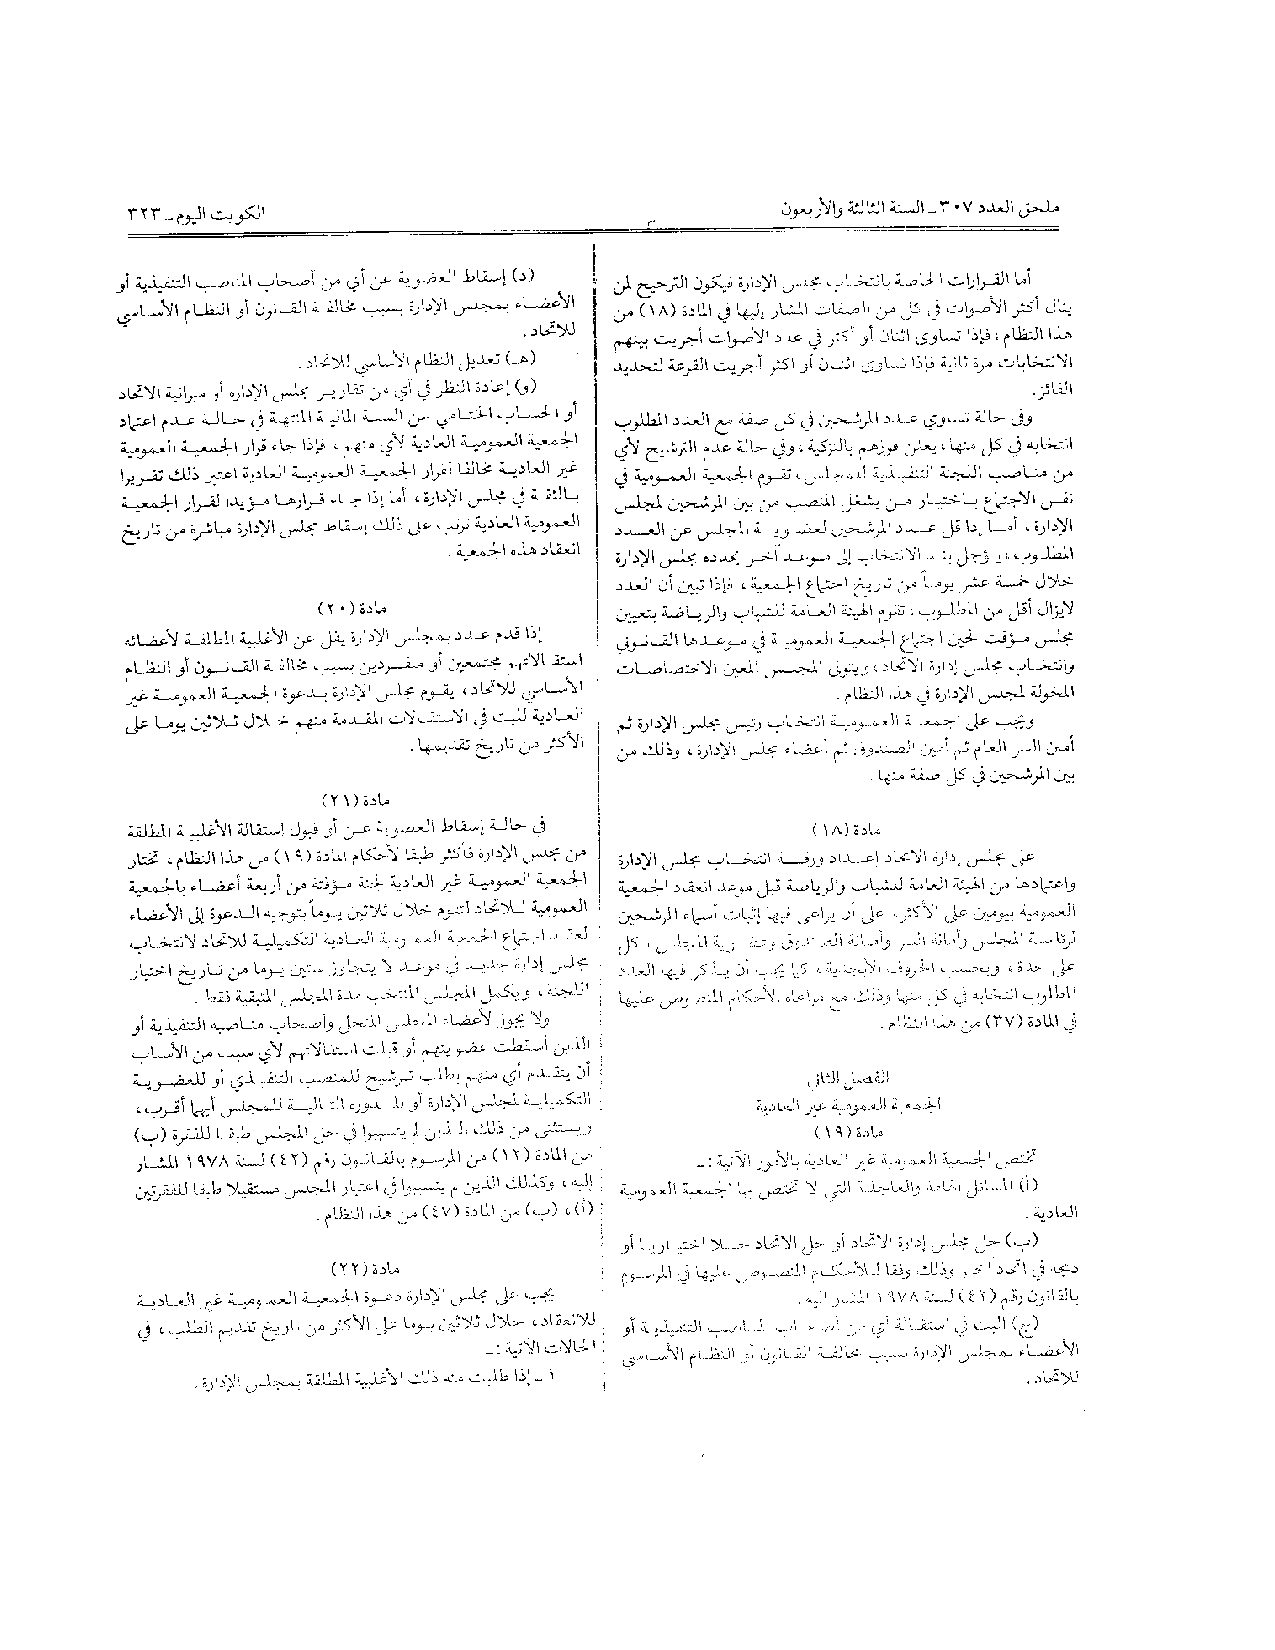 ملحق العدد ٣٠٧ ـ السنة الثالثة والأربعون
الكويت اليوم ـ ٣٢٣
أما القرارات الخاصة بانتخاب مجلس الإدارة فيكون الترجيح لمن
ينال أكثر الأصوات في كل من الصفات المشار إليها في المادة (١٨) من
هذا النظام ، فإذا تساوى اثنان أو أكثر في عدد الأصوات أجريت بينهم
الانتخابات مرة ثانية فإذا تساوى اثنان أو أكثر أجريت القرعة لتحديد
الفائز.
وفي حالة تساوي عدد المرشحين في كل صفة مع العدد المطلوب
انتخابه في كل منها ، يعلن فوزهم بالتزكية ، وفي حالة عدم الترشيح لأي
من مناصب اللجنة التنفيذية للمجلس ، تقوم الجمعية العمومية في
نفس الاجتماع باختيار من يشغل المنصب من بين المرشحين لمجلس
الإدارة ، أما إذا قل عدد المرشحين لعضوية المجلس عن العدد
المطلوب ، يؤجل الانتخاب إلى موعد آخر يحدده مجلس الإدارة
خلال خمسة عشر يوماً من تاريخ اجتماع الجمعية ، فإذا تبين أن العدد
لايزال أقل من المطلوب ، تقوم الهيئة العامة للشباب والرياضة بتعيين
مجلس مؤقت لحين اجتماع الجمعية العمومية في موعدها القانوني
وانتخاب مجلس إدارة الاتحاد ، ويتولى المجلس المعين الاختصاصات
المخولة لمجلس الإدارة في هذا النظام .
ويجب على الجمعية العمومية انتخاب رئيس مجلس الإدارة ثم
أمين السر العام ثم أمين الصندوق ثم أعضاء مجلس الإدارة ، وذلك من
بين المرشحين في كل صفة منها .
مادة (١٨)
على مجلس إدارة الاتحاد إعداد ورقة انتخاب مجلس الإدارة
واعتمادها من الهيئة العامة للشباب والرياضة قبل موعد انعقاد الجمعية
العمومية بيومين على الأكثر ، على أن يراعى فيها إثبات أسماء المرشحين
لرئاسة المجلس وأمانة السر وأمانة الصندوق وعضوية المجلس ، كل
على حدة ، وبحسب الحروف الأبجدية ، كما يجب أن يذكر فيها العدد
المطلوب انتخابه في كل منها وذلك مع مراعاة الأحكام المنصوص عليها
في المادة (٣٧) من هذا النظام .
الفصل الثاني
الجمعية العمومية غير العادية
مادة (١٩)
تختص الجمعية العمومية غير العادية بالأمور الآتية : ـ
(أ) المسائل الهامة والعاجلة التي لا تختص بها الجمعية العمومية
العادية .
(ب) حل مجلس إدارة الاتحاد أو حل الاتحاد حلا اختياريا أو
دمجه في اتحاد آخر وذلك وفقا للأحكام المنصوص عليها في المرسوم
بالقانون رقم (٤٢) لسنة ١٩٧٨ المشار اليه .
(ج) البت في استقالة أي من أصحاب المناصب التنفيذية أو
الأعضاء بمجلس الإدارة بسبب مخالفة القانون أو النظام الأساسي
للاتحاد .
(د) إسقاط العضوية عن أي من أصحاب المناصب التنفيذية أو
الأعضاء بمجلس الإدارة بسبب مخالفة القانون أو النظام الأساسي
للاتحاد .
(هـ) تعديل النظام الأساسي للاتحاد .
(و) إعادة النظر في أي من تقارير مجلس الإدارة أو ميزانية الاتحاد
أو الحساب الختامي عن السنة المالية المنتهية في حالة عدم اعتماد
الجمعية العمومية العادية لأي منهم ، فإذا جاء قرار الجمعية العمومية
غير العادية مخالفا لقرار الجمعية العمومية العادية اعتبر ذلك تقريرا
بالثقة في مجلس الإدارة ، أما إذا جاء قرارها مؤيدا لقرار الجمعية
العمومية العادية ترتب على ذلك إسقاط مجلس الإدارة مباشرة من تاريخ
انعقاد هذه الجمعية .
مادة (٢٠)
إذا قدم عدد بمجلس الإدارة يقل عن الأغلبية المطلقة لأعضائه
استقالاتهم مجتمعين أو منفردين بسبب مخالفة القانون أو النظام
الأساسي للاتحاد ، يقوم مجلس الإدارة بدعوة الجمعية العمومية غير
العادية للبت في الاستقالات المقدمة منهم خلال ثلاثين يوما على
الأكثر من تاريخ تقديمها .
مادة (٢١)
في حالة إسقاط العضوية عن أو قبول استقالة الأغلبية المطلقة
من مجلس الإدارة فأكثر طبقا لأحكام المادة (١٩) من هذا النظام ، تختار
الجمعية العمومية غير العادية لجنة مؤقتة من أربعة أعضاء بالجمعية
العمومية للاتحاد لتقوم خلال ثلاثين يوماً بتوجيه الدعوة إلى الأعضاء
لعقد اجتماع الجمعية العمومية العادية التكميلية للاتحاد لانتخاب
مجلس إدارة جديد في موعد لا يتجاوز ستين يوما من تاريخ اختيار
اللجنة ، ويكمل المجلس المنتخب مدة المجلس المتبقية فقط .
ولا يجوز لأعضاء المجلس المنحل وأصحاب مناصبه التنفيذية أو
الذين أسقطت عضويتهم أو قبلت استقالاتهم لأي سبب من الأسباب
أن يتقدم أي منهم بطلب ترشيح للمنصب التنفيذي أو للعضوية
التكميلية لمجلس الإدارة أو بالدورة التالية للمجلس أيهما أقرب ،
ويستثنى من ذلك الذين لم يتسببوا في حل المجلس طبقا للفقرة (ب)
من المادة (١٢) من المرسوم بالقانون رقم (٤٢) لسنة ١٩٧٨ المشار
اليه ، وكذلك الذين لم يتسببوا في اعتبار المجلس مستقيلا طبقا للفقرتين
(أ) ، (ب) من المادة (٤٧) من هذا النظام .
مادة (٢٢)
يجب على مجلس الإدارة دعوة الجمعية العمومية غير العادية
للانعقاد ، خلال ثلاثين يوما على الأكثر من تاريخ تقديم الطلب ، في
الحالات الآتية : ـ
١ ـ إذا طلبت منه ذلك الأغلبية المطلقة بمجلس الإدارة .